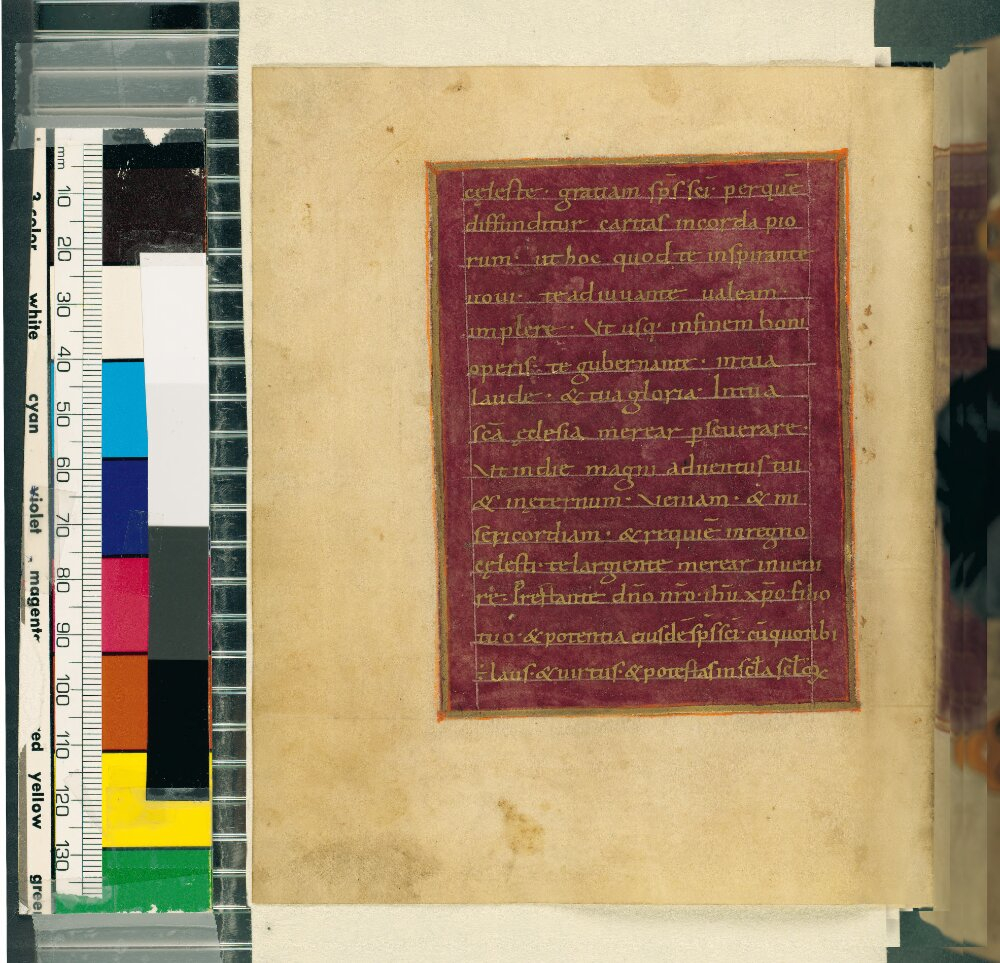 mm 10 20 30 40 50 60 70 80 90 100 110 120 130
white cyan violet magent ed yellow gree
cęleste · gratiam sp̄s sc̄i · per quē
diffunditur caritas in corda pio
rum · ut hoc quod te inspirante
uoui · te adiuuante ualeam ·
implere · Vt usq· in finem boni
operis · te gubernante · in tua
laude · & tua gloria · In tua
sc̄a ęclesia merear p̱seuerare ·
Vt in die magni aduentus tui
& in ęternum · Veniam · & mi
sericordiam · & requiē in regno
cęlesti · te largiente merear inueni
re · Prestante dn̄o nr̄o ih̄u xp̄o filio
tuo · & potentia eiusdē sp̄s sc̄i cū quo tibi
÷ laus · & uirtus · & potestas in sc̄la sc̄loꝝ